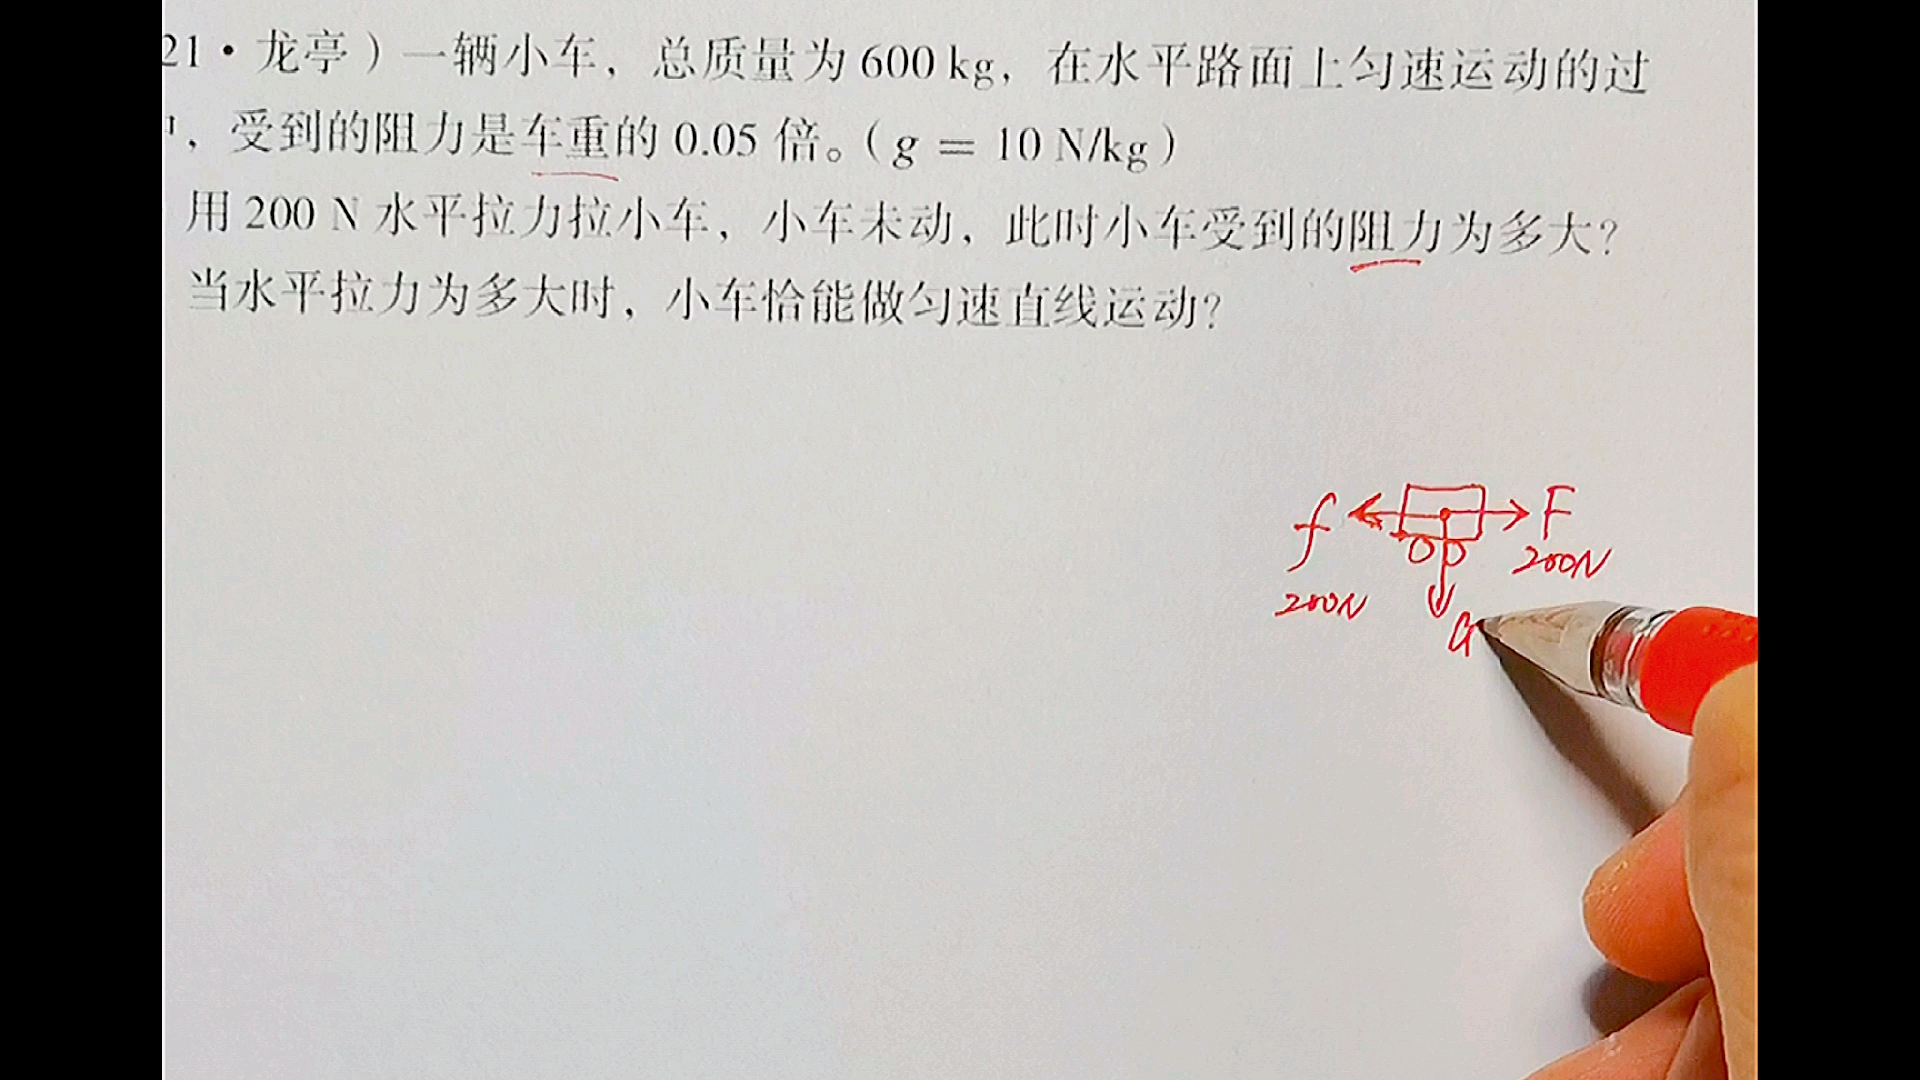 21·龙亭）一辆小车，总质量为 600 kg，在水平路面上匀速运动的过
，受到的阻力是车重的 0.05 倍。（g = 10 N/kg）
用 200 N 水平拉力拉小车，小车未动，此时小车受到的阻力为多大？
当水平拉力为多大时，小车恰能做匀速直线运动？
f F
200N
200N
G